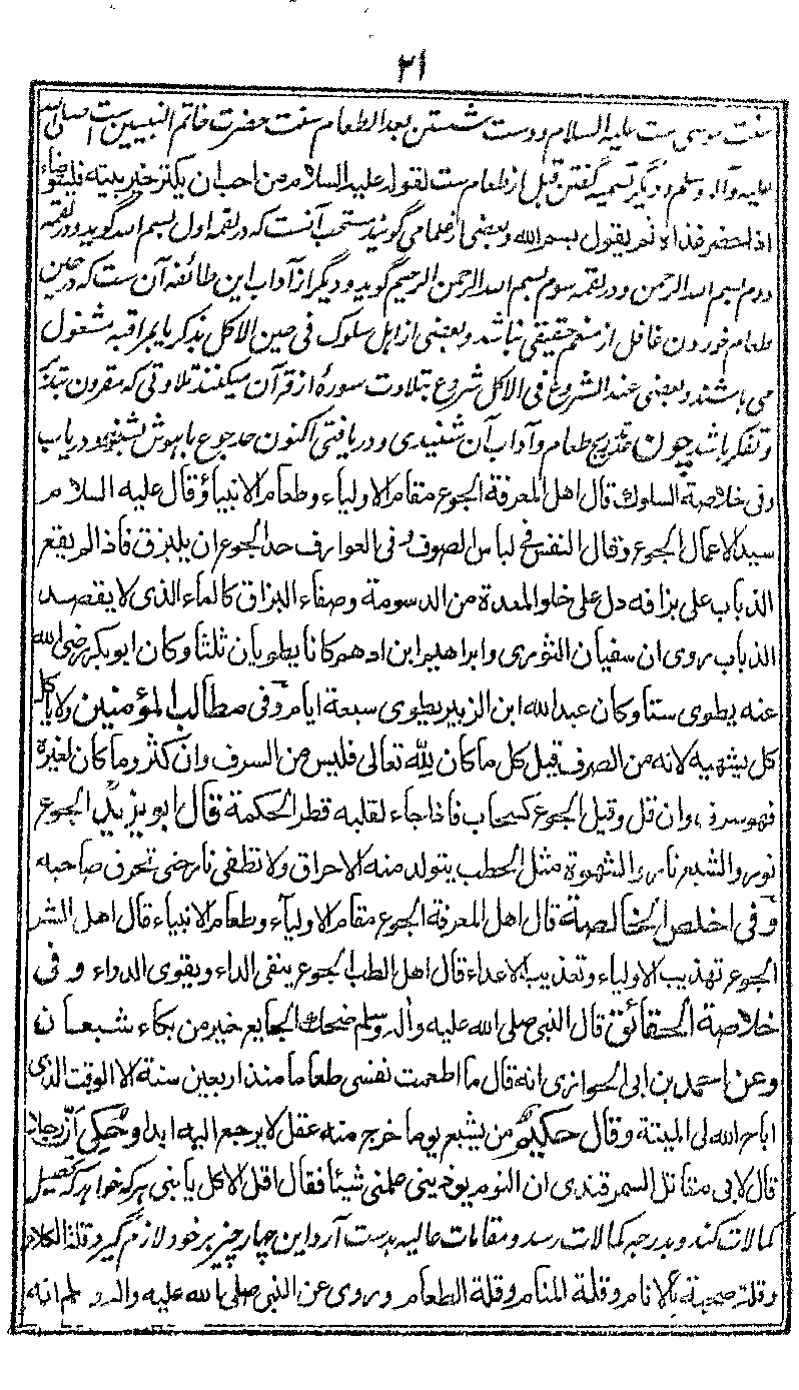 ۲۱
سنت موسی ست علیه السلام و دست شستن بعد الطعام سنت حضرت خاتم النبیین ست صلی الله
علیه وآله وسلم و دیگر تسمیه گفتن قبل از طعام ست لقوله علیه السلام من احب ان یکثر خیر بیته فلیتوضاء
اذا حضر غذاه ثم یقول بسم الله و بعضی از علما می گویند مستحب آنست که در لقمه اول بسم الله گوید و در لقمه
دوم بسم الله الرحمن و در لقمه سوم بسم الله الرحمن الرحیم گوید و دیگر از آداب این طائفه آن ست که در حین
طعام خوردن غافل از منعم حقیقی نباشد و بعضی از اهل سلوک فی حین الاکل بذکر یا بمراقبه مشغول
می باشند و بعضی عند الشروع فی الاکل شروع بتلاوت سورهٔ از قرآن میکنند تلاوتی که مقرون بتدبر
و تفکر باشد چون تدریج طعام و آداب آن شنیدی و دریافتی اکنون حد جوع با هوش بشنو و دریاب
وفی خلاصة السلوك قال اهل المعرفة الجوع مقام الاولیاء وطعام الانبیاء وقال علیه السلام
سید الاعمال الجوع وقال النفس فی لباس الصوف وفی العوارف حد الجوع ان یبزق فاذا لم یقع
الذباب علی بزاقه دل علی خلو المعدة من الدسومة وصفاء البزاق کالماء الذی لا یقصده
الذباب روی ان سفیان الثوری وابراهیم ابن ادهم کانا یطویان ثلثا وکان ابوبکر رضی الله
عنه یطوی ستا وکان عبدالله ابن الزبیر یطوی سبعة ایام وفی مطالب المؤمنین ولا یاکل
کل یشتهیه لانه من الصرف قیل کل ما کان لله تعالی فلیس من السرف وان کثر وما کان لغیره
فهو سرف وان قل وقیل الجوع کسحاب فاذا جاء لقلبه قطر الحکمة قال ابو یزید الجوع
نور والشبع نار والشهوة مثل الحطب یتولد منه الاحراق ولا تطفی نار حتی تحرق صاحبه
وفی اخلص الخالصة قال اهل المعرفة الجوع مقام الاولیاء وطعام الانبیاء قال اهل الشر
الجوع تهذیب الاولیاء وتعذیب الاعداء قال اهل الطب الجوع ینفی الداء ویقوی الدواء وفی
خلاصة الحقائق قال النبی صلی الله علیه واله وسلم ضحك الجایع خیر من بکاء شبعان
وعن احمد بن ابی الحواری انه قال ما اطعمت نفسی طعاما منذ اربعین سنة الا الوقت الذی
اباح الله لی المیتة وقال حکیم من یشبع یوما خرج منه عقل لا یرجع الیه ابدا وحکی ان رجلا
قال لابی مقاتل السمرقندی ان النوم یوذینی علمنی شیئا فقال اقل الاکل یا بنی هر که خواهد که تحصیل
کمالات کند و بدرجه کمالات رسد و مقامات عالیه بدست آرد این چهار چیز بر خود لازم گیرد قلة الکلام
وقلة صحبة الانام وقلة المنام وقلة الطعام وروی عن النبی صلی الله علیه واله وسلم انه